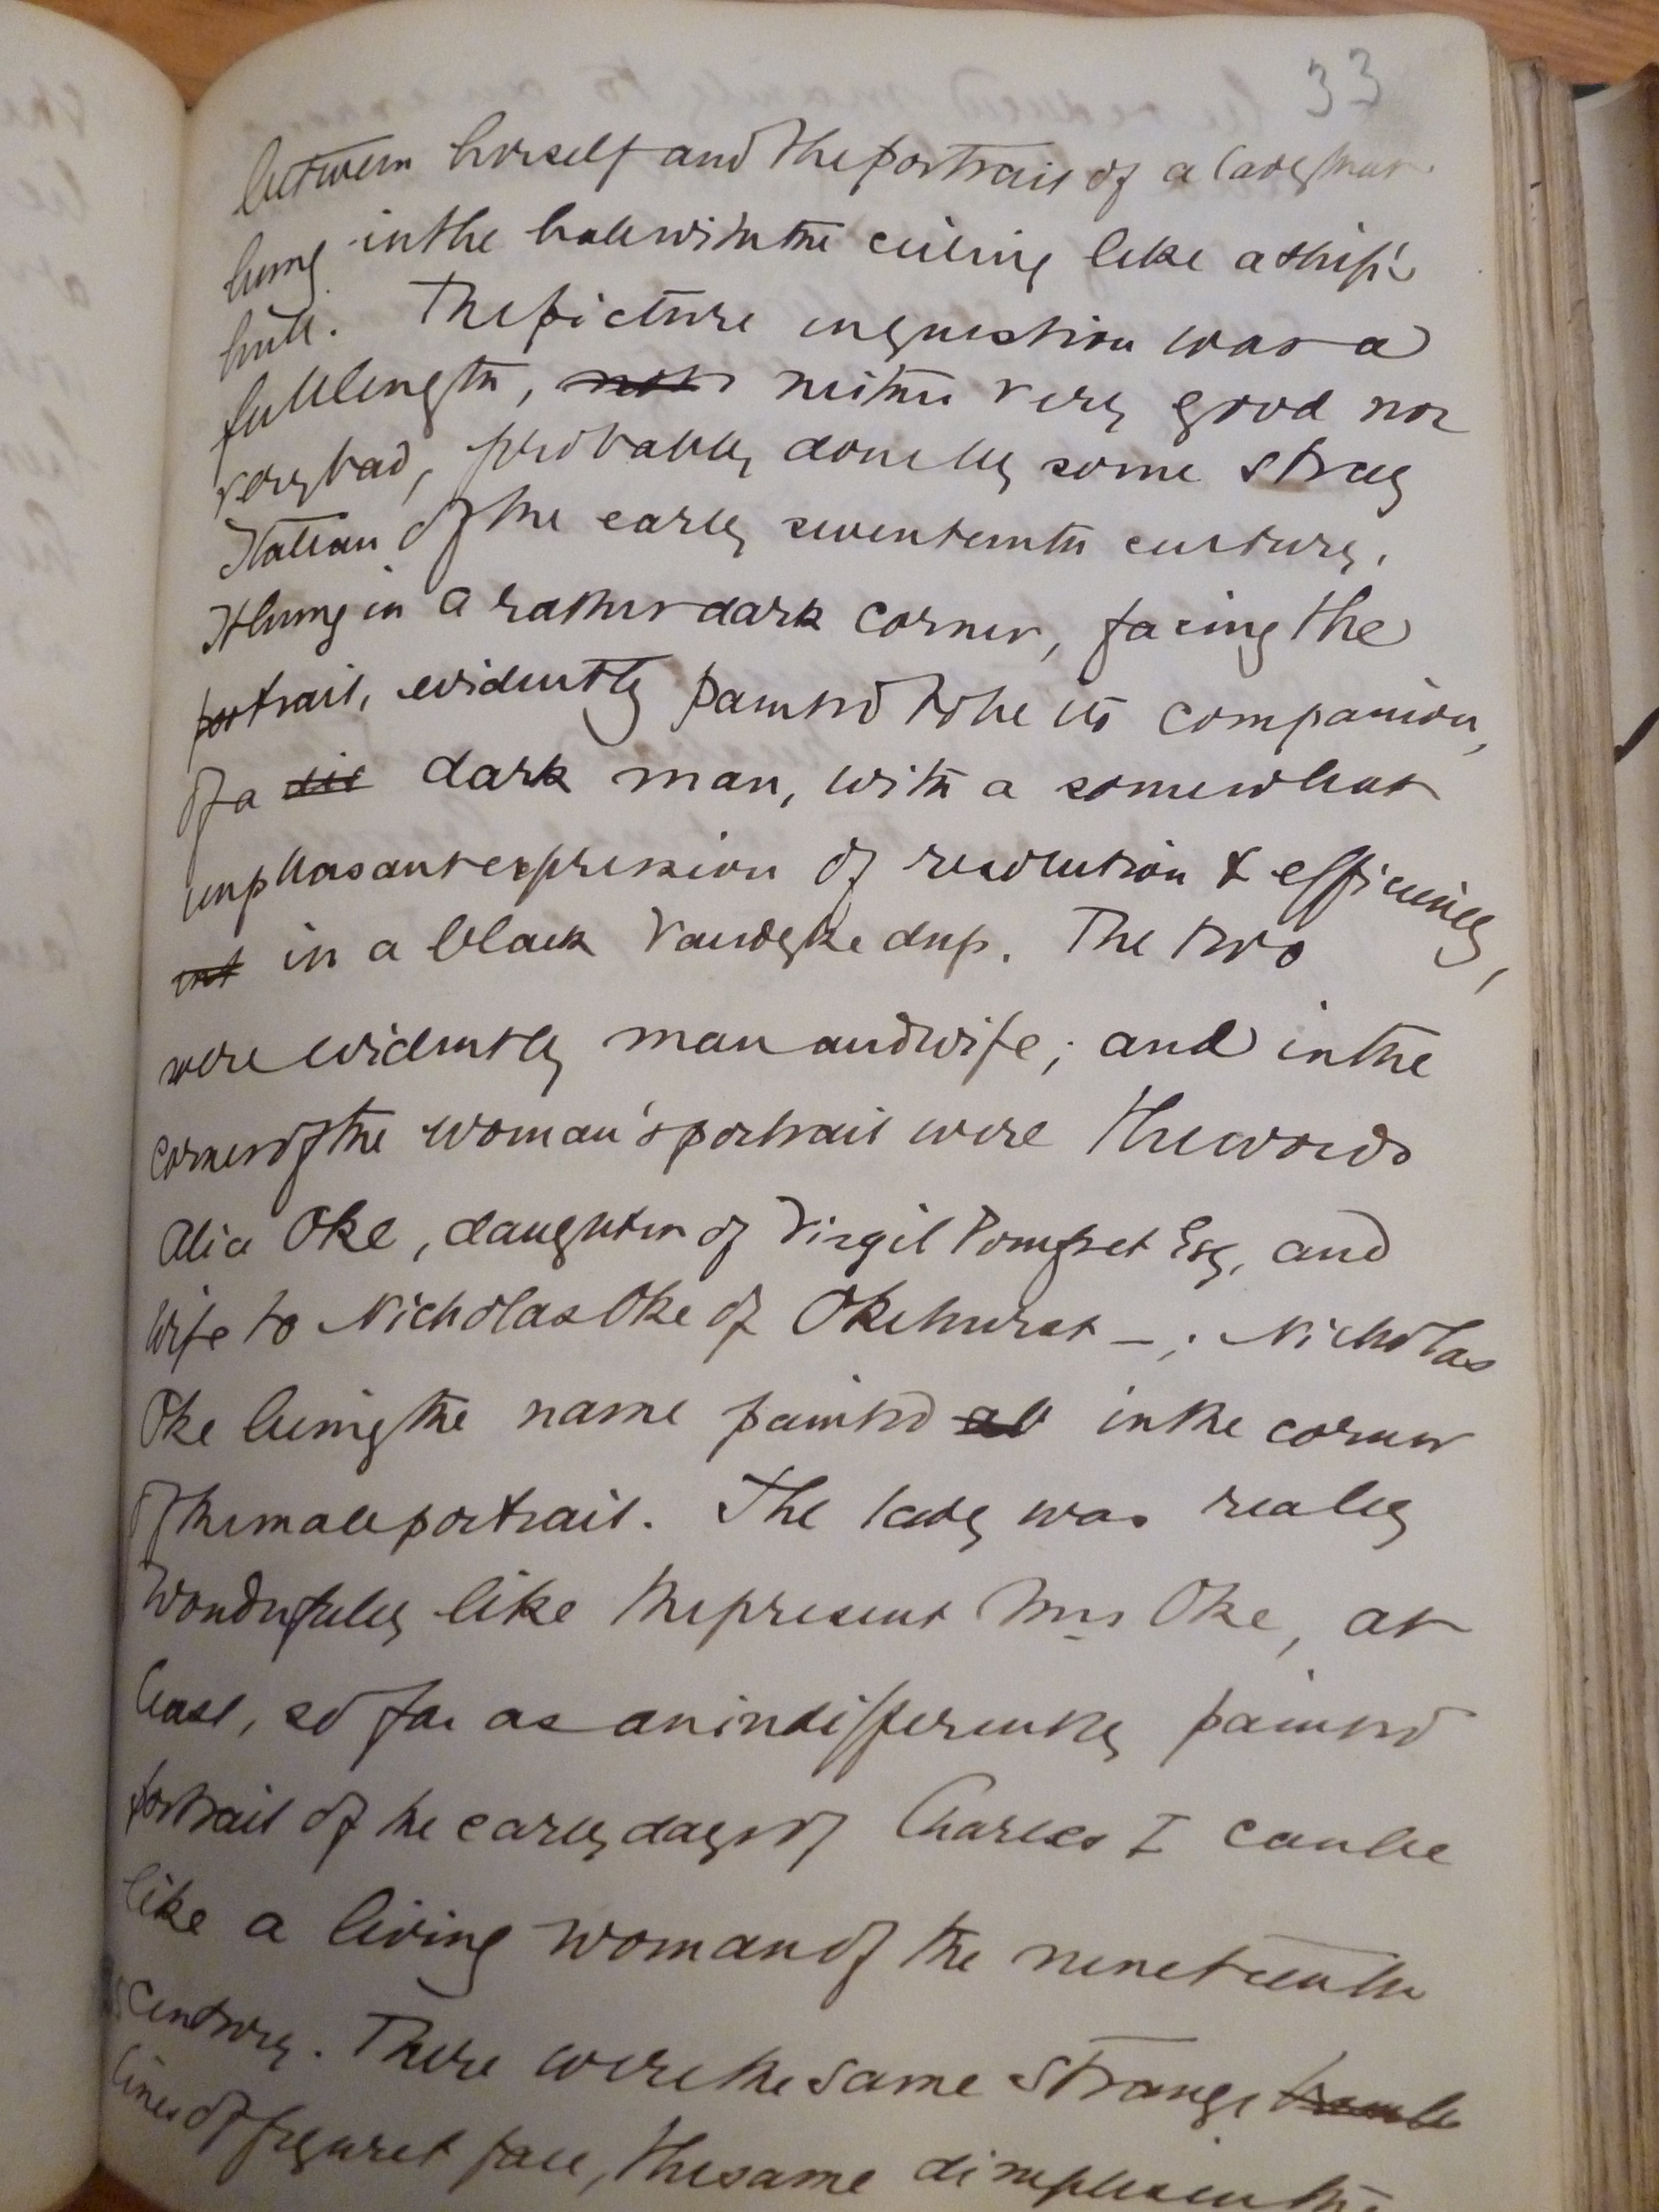 33
between herself and the portrait of a lady that
hung in the hall with the ceiling like a ship's
hull. The picture in question was a
full length, not neither very good nor
very bad, probably done by some stray
Italian of the early seventeenth century.
It hung in a rather dark corner, facing the
portrait, evidently painted to be its companion,
of a dark man, with a somewhat
unpleasant expression of resolution & efficiency,
in a black Vandyke dress. The two
were evidently man and wife; and in the
corner of the woman's portrait were the words
Alice Oke, daughter of Virgil Pomfret Esq, and
wife to Nicholas Oke of Okehurst –; Nicholas
Oke being the name painted in the corner
of the male portrait. The lady was really
wonderfully like the present Mrs Oke, at
least, so far as an indifferently painted
portrait of the early days of Charles I can be
like a living woman of the nineteenth
century. There were the same strange
lines of figure & face, the same dimples in the